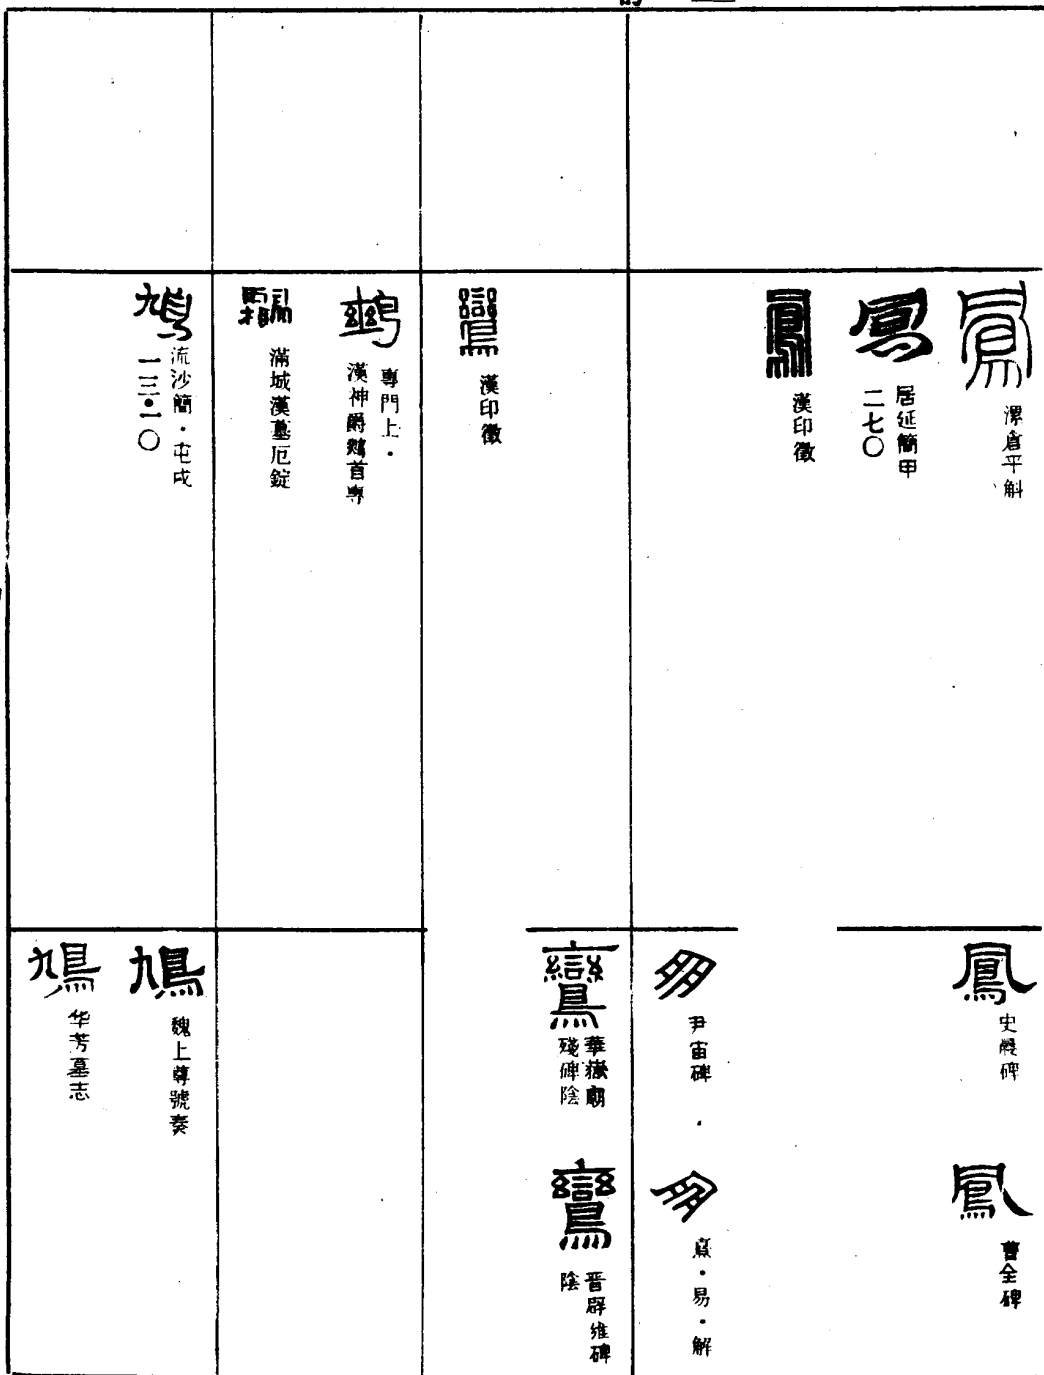 鳳
漯倉平斛
鳳
居延簡甲
二七〇
鳳
漢印徵
鸞
漢印徵
專門上·
漢神爵鷞首專
滿城漢墓卮錠
鳩
流沙簡·屯戍
一三·一〇
鳳
史晨碑
鳳
曹全碑
朋
尹宙碑
朋
熹·易·解
鸞
華嶽廟
殘碑陰
鸞
晉辟雍碑
陰
鳩
魏上尊號奏
鳩
华芳墓志